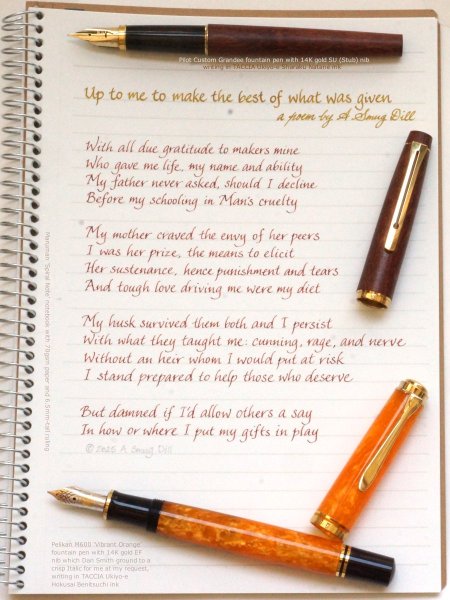 Pilot Custom Grandee fountain pen with 14K gold SU (Stub) nib
writing in TACCIA Ukiyo-e Sharaku Kurocha ink
Up to me to make the best of what was given
a poem by A Smug Dill
With all due gratitude to makers mine
Who gave me life, my name and ability
My father never asked, should I decline
Before my schooling in Man's cruelty
My mother craved the envy of her peers
I was her prize, the means to elicit
Her sustenance, hence punishment and tears
And tough love driving me were my diet
My husk survived them both and I persist
With what they taught me: cunning, rage, and nerve
Without an heir whom I would put at risk
I stand prepared to help those who deserve
But damned if I'd allow others a say
In how or where I put my gifts in play
© 2025 A Smug Dill
notebook with 70gsm paper and 6.5mm-tall ruling
Pelikan M600 'Vibrant Orange'
fountain pen with 14K gold EF
nib which Dan Smith ground to a
crisp Italic for me at my request,
writing in TACCIA Ukiyo-e
Hokusai Benitsuchi ink